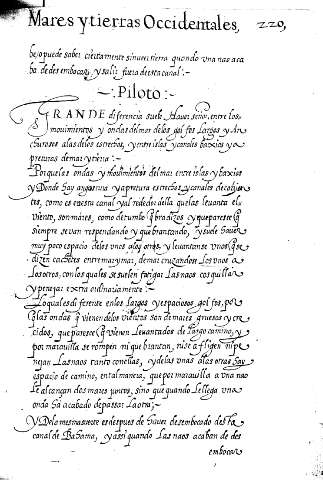 Mares y tierras Occidentales, 220,
bajo puede saber ciertamente sin ver tierra quando una nao aca
ba de desembocar, y salir fuera de esta canal:-
-:· Piloto:-
GRANDE diferencia suele Haver, señor, entre los
movimientos y ondas del mar de los golfos Largos y An
churosos a las de los estrechos, y entre islas y canales baxios y a
preturas de mar y tierra:-
Por que las ondas y movimientos del mar entre islas y baxios
y Donde hay angostura y apretura estrechos, y canales de col
tes, como es en esta canal y al rededor della que las levanta el
viento, son mares, como de tumbo y
siempre se van respondando y quebrantando, y suele haver
muy poco espacio de los unos a los otros, y levantanse unos que se
dizen entre mar y mar, demas cruzandose Los unos a
Los otros, con los quales se suelen fatigar Las naos cosquilla
y penejar extra ordinariamente:-
Lo qual es diferente en los Largos y espaciosos golfos, por
que las ondas que vienen de los vientos son de mares gruesas y cre
cidos, que parese que vienen Levantados de Largo camino, y
por maravilla se rompen ni quebrantan, ni se afligen ni pe
nejan Las naos tanto con ellas, y de las unas a las otras hay
espacio de camino, en tal manera, que por maravilla a una nao
Le alcançan dos mares juntos, sino que quando Le llega una
onda ha acabado de passar La otra:-
Y De la mesma suerte es despues de haver desembocado desta
canal de Bahama, y assi quando Las naos acaban de des
embocar